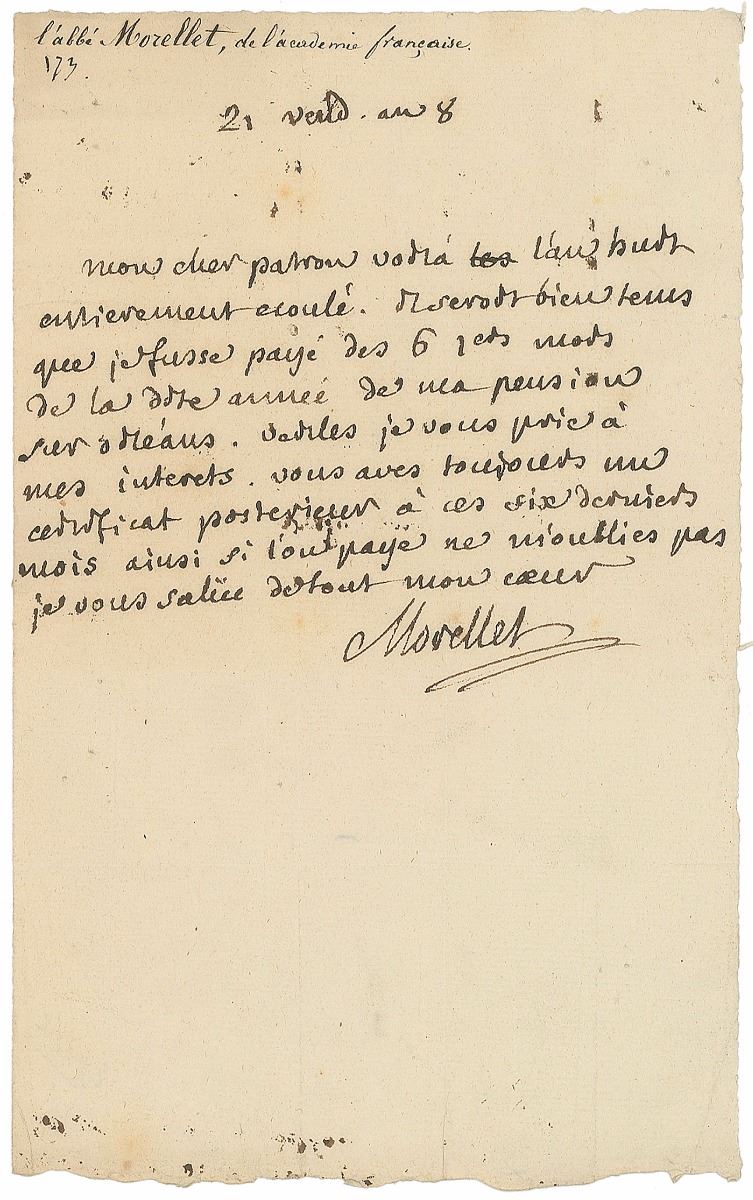 l'abbé Morellet, de l'academie française.
173.
21 vend. an 8
mon cher patron voila les l'an huit
entierement ecoulé. il seroit bien tems
que je fusse payé des 6 1ers mois
de la dite année de ma pension
sur orléans. veilles je vous prie à
mes interets. vous aves toujours un
certificat posterieur à ces six derniers
mois ainsi si l'on paye ne m'oublies pas
je vous salüe de tout mon cœur
Morellet